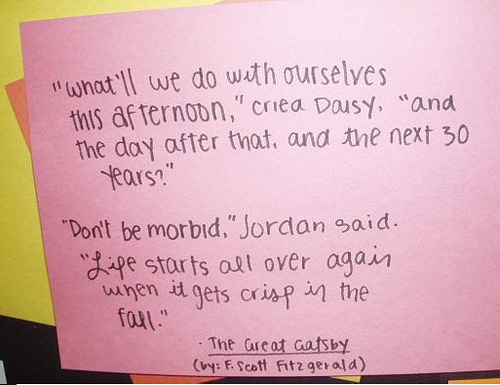 "what'll we do with ourselves
this afternoon," cried Daisy, "and
the day after that, and the next 30
years?"
"Don't be morbid," Jordan said.
"Life starts all over again
when it gets crisp in the
fall."
- The Great Gatsby
(by: F. Scott Fitzgerald)